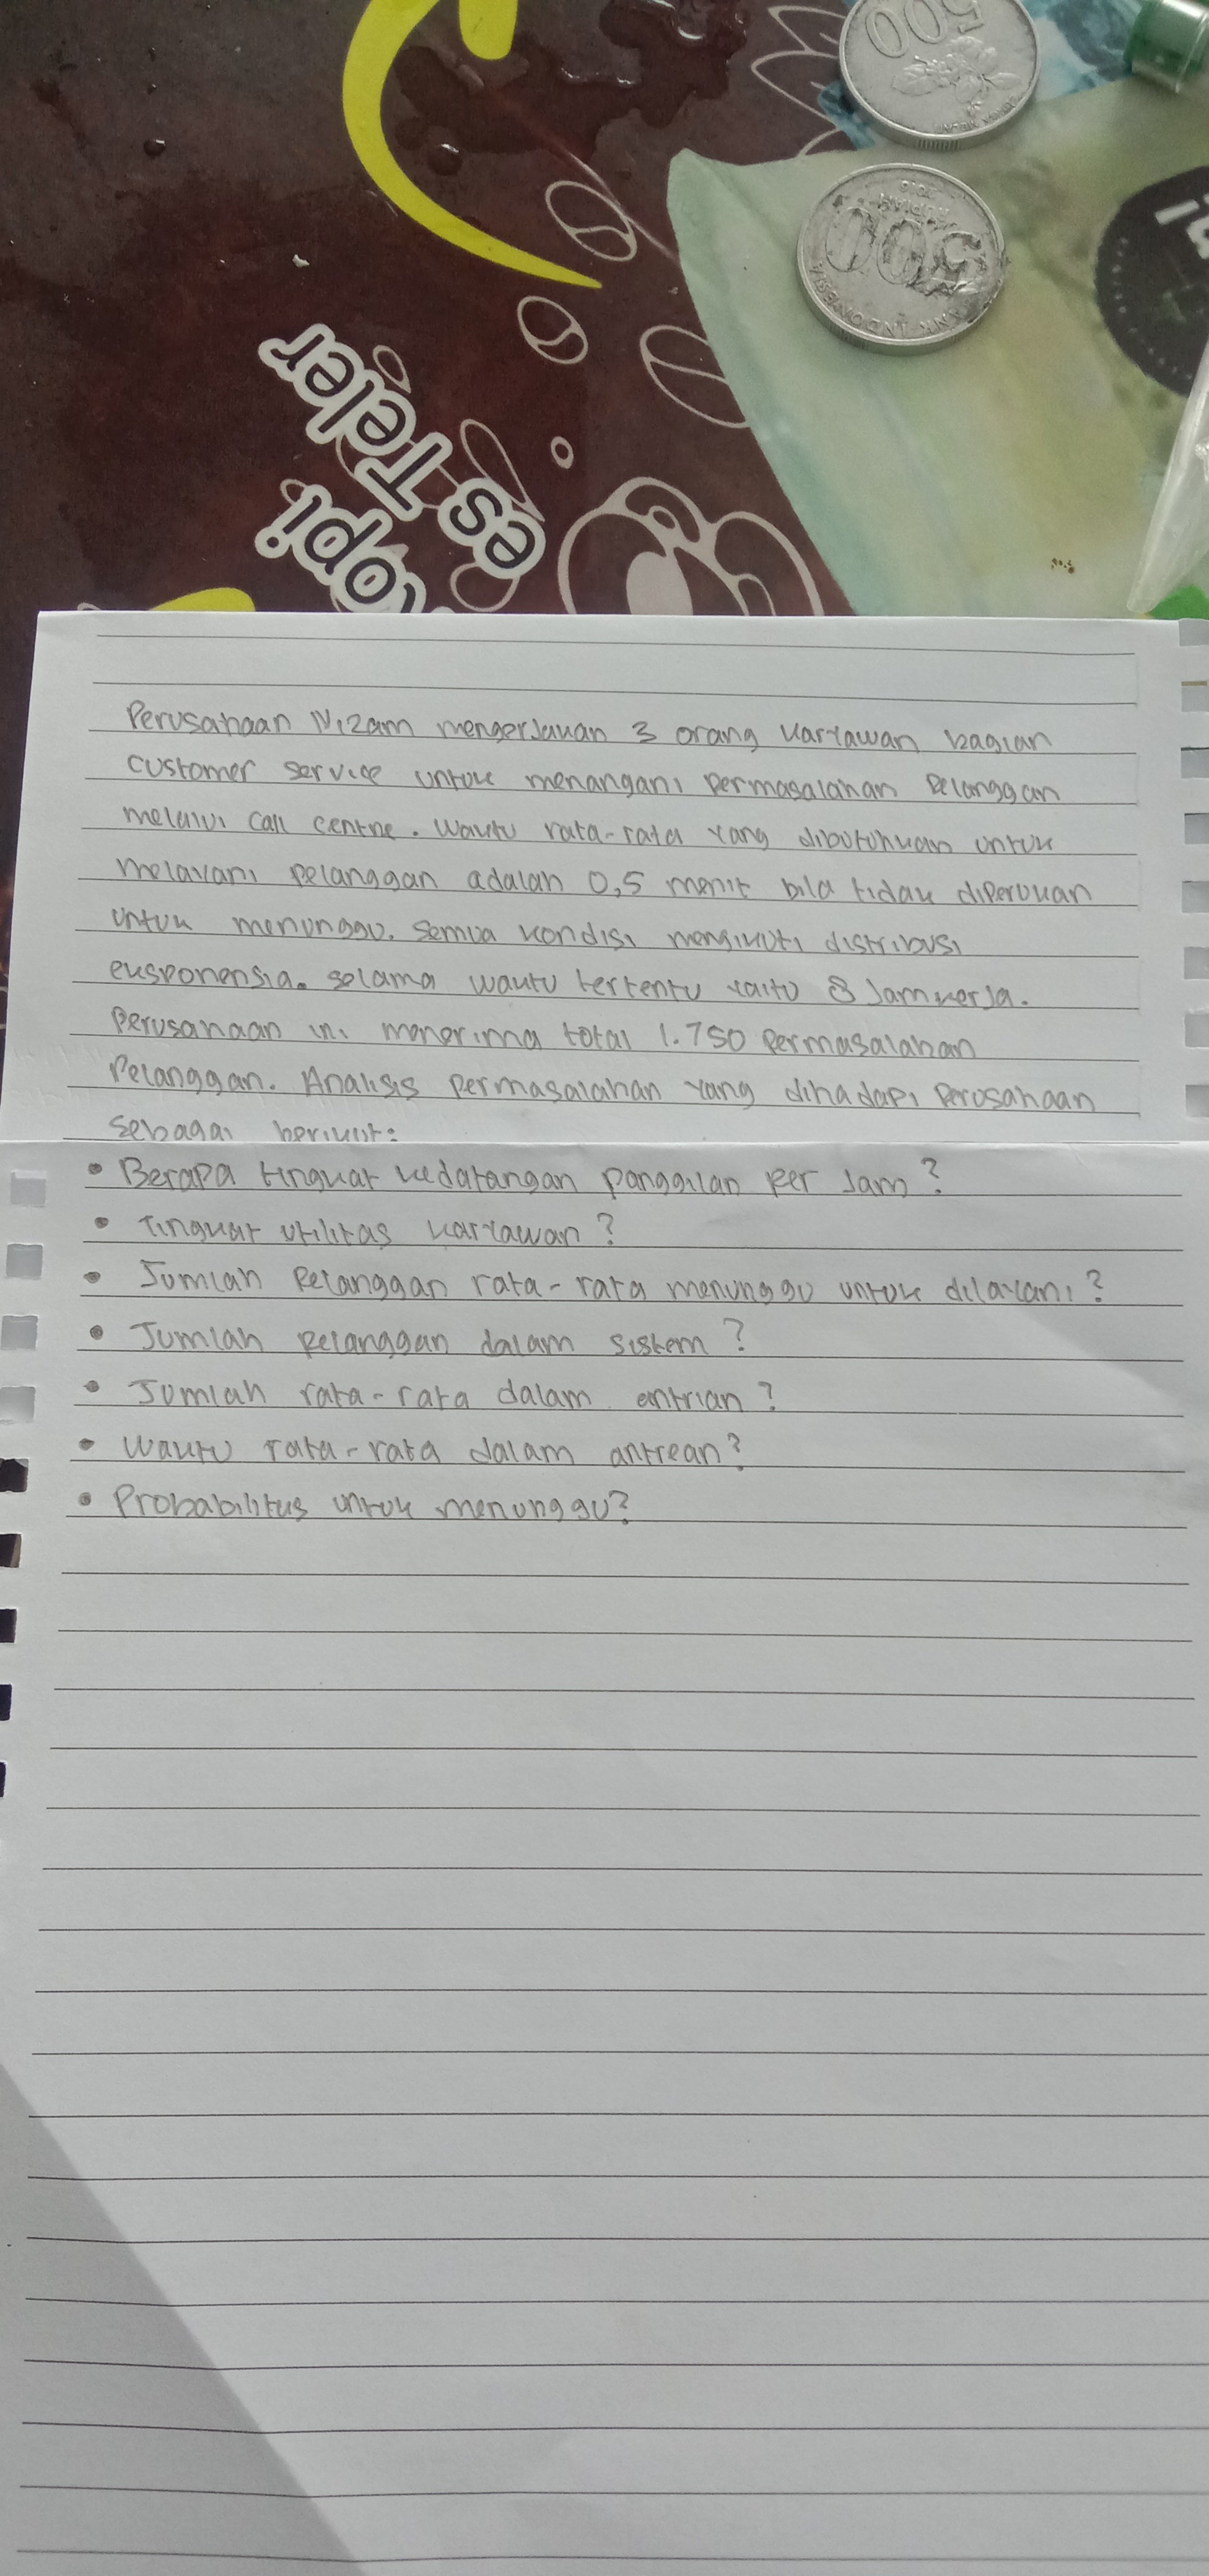 500
500
RUPIAH
2010
BANK INDONESIA
es Teler
opi
Perusahaan Nizam mengerjakan 3 orang karyawan bagian
customer service untuk menangani permasalahan pelanggan
melalui call centre. Waktu rata-rata yang dibutuhkan untuk
melayani pelanggan adalah 0,5 menit bila tidak diperlukan
untuk menunggu. Semua kondisi mengikuti distribusi
eksponensia. selama waktu tertentu yaitu 8 Jam kerja.
Perusahaan ini menerima total 1.750 permasalahan
Pelanggan. Analisis permasalahan yang dihadapi perusahaan
sebagai berikut:
• Berapa tingkat kedatangan panggilan per Jam?
• Tingkat utilitas karyawan?
• Jumlah Pelanggan rata-rata menunggu untuk dilayani?
• Jumlah pelanggan dalam sistem?
• Jumlah rata-rata dalam antrian?
• Waktu rata-rata dalam antrean?
• Probabilitus untuk menunggu?